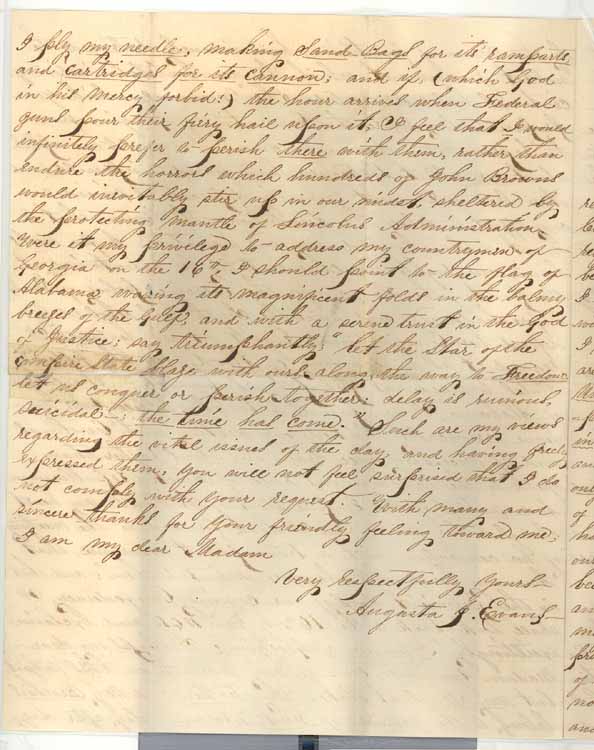 I ply my needle, making Sand-Bags for its ramparts,
and Cartridges for its Cannon; and if, (which God
in his Mercy forbid!) the hour arrives when Federal
guns pour their fiery hail upon it, I feel that I would
infinitely prefer to perish there with them, rather than
endure the horrors which hundreds of John Browns
would inevitably stir up in our midst, sheltered by
the protecting mantle of Lincolns Administration.
Were it my privilege to address my countrymen of
Georgia on the 16th, I should point to the flag of
Alabama waving its magnificent folds in the balmy
breezes of the Gulf, and with a serene trust in the God
of Justice; say triumphantly, "let the Star of the
Empire State blaze with ours along the way to Freedom
let us conquer or perish together; delay is ruinous,
suicidal—; the time has come." Such are my views
regarding the vital issues of the day, and having freely
expressed them, you will not feel surprised that I do
not comply with your request. With many and
sincere thanks for your friendly feeling toward me;
I am my dear Madam
Very respectfully Yours—
Augusta J. Evans—